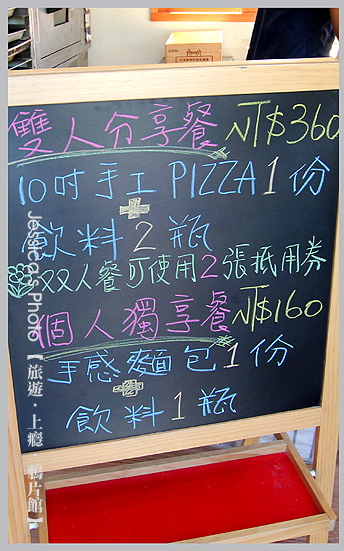 雙人分享餐 NT$360
10吋手工PIZZA1份
+
飲料2瓶
双人餐可使用2張抵用券
個人獨享餐 NT$160
手感麵包1份
+
飲料1瓶
Jessica's Photo【旅遊‧上癮 鴉片館】